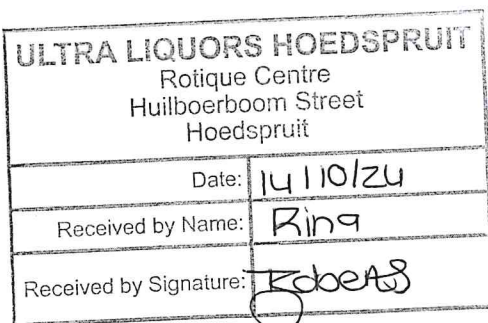 ULTRA LIQUORS HOEDSPRUIT
Rotique Centre
Huilboerboom Street
Hoedspruit
Date: 14/10/24
Received by Name: Rina
Received by Signature: